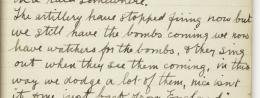 on a raid somewhere.
The artillery have stopped firing now but
we still have the bombs coming we now
have watchers for the bombs, & they sing
out when they see them coming, in this
way we dodge a lot of them, nice isn't
it